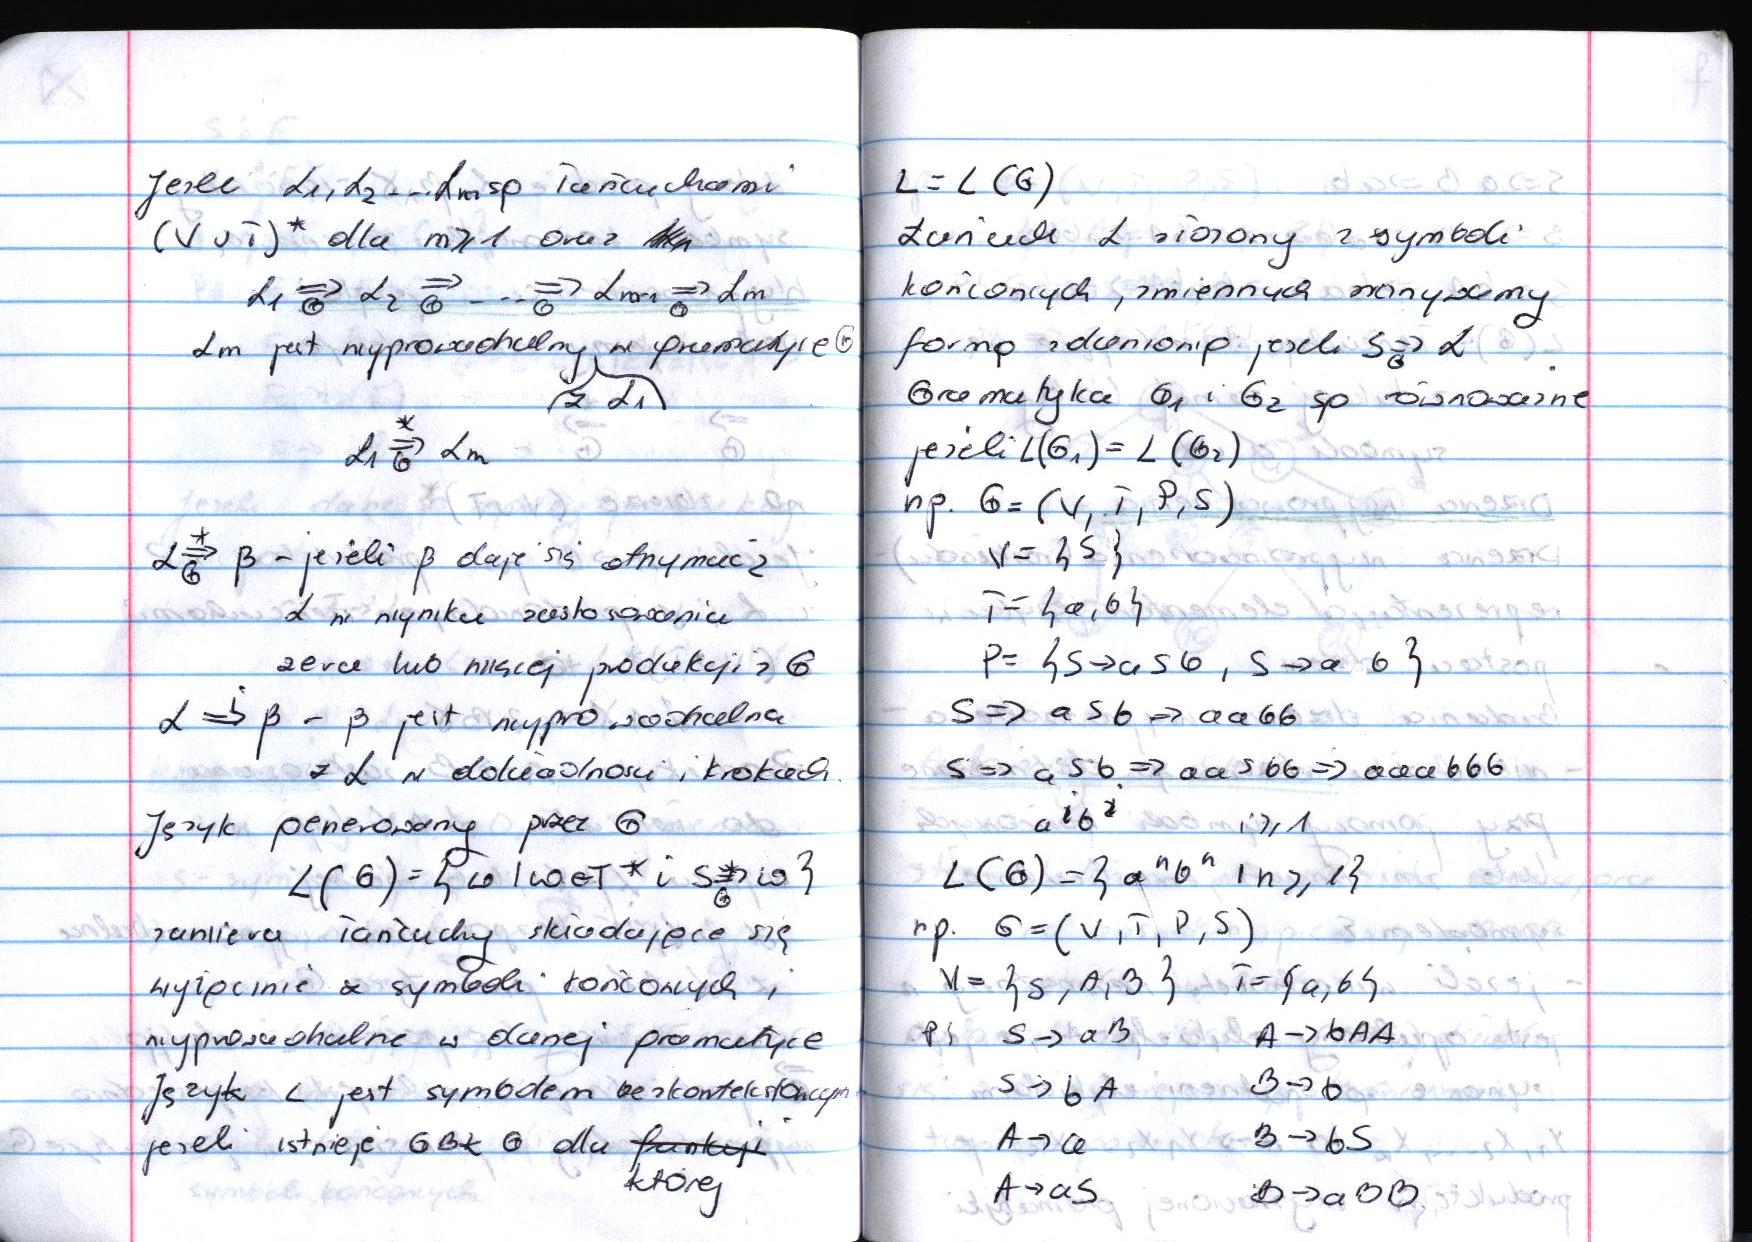 Jeżeli α1, α2 ... αm są łańcuchami
(V∪T)* dla m≥1 oraz
α1 ⇒G α2 ⇒G ... ⇒G αm-1 ⇒G αm
αm jest wyprowadzalny w gramatyce G
z α1
α1 ⇒*G αm
α ⇒*G β - jeżeli β daje się otrzymać z
α w wyniku zastosowania
zera lub więcej produkcji z G
α ⇒i β - β jest wyprowadzalna
z α w dokładności i krokach.
Język generowany przez G
L(G) = {ω | ω∈T* i S ⇒*G ω}
zawiera łańcuchy składające się
wyłącznie z symboli końcowych,
wyprowadzalne w danej gramatyce
Język L jest symbolem bezkontekstowym
jeżeli istnieje GBK G dla funkcji
której
L = L(G)
Łańcuch α złożony z symboli
końcowych, zmiennych nazywamy
formą zdaniową jeżeli S ⇒G α
Gramatyka G1 i G2 są równoważne
jeżeli L(G1) = L(G2)
np. G = (V, T, P, S)
V = {S}
T = {a, b}
P = {S → aSb, S → ab}
S ⇒ aSb ⇒ aabb
S ⇒ aSb ⇒ aaSbb ⇒ aaabbb
a^i b^i i≥1
L(G) = {a^n b^n | n≥1}
np. G = (V, T, P, S)
V = {S, A, B} T = {a, b}
P: S → aB A → bAA
S → bA B → b
A → a B → bS
A → aS B → aBB